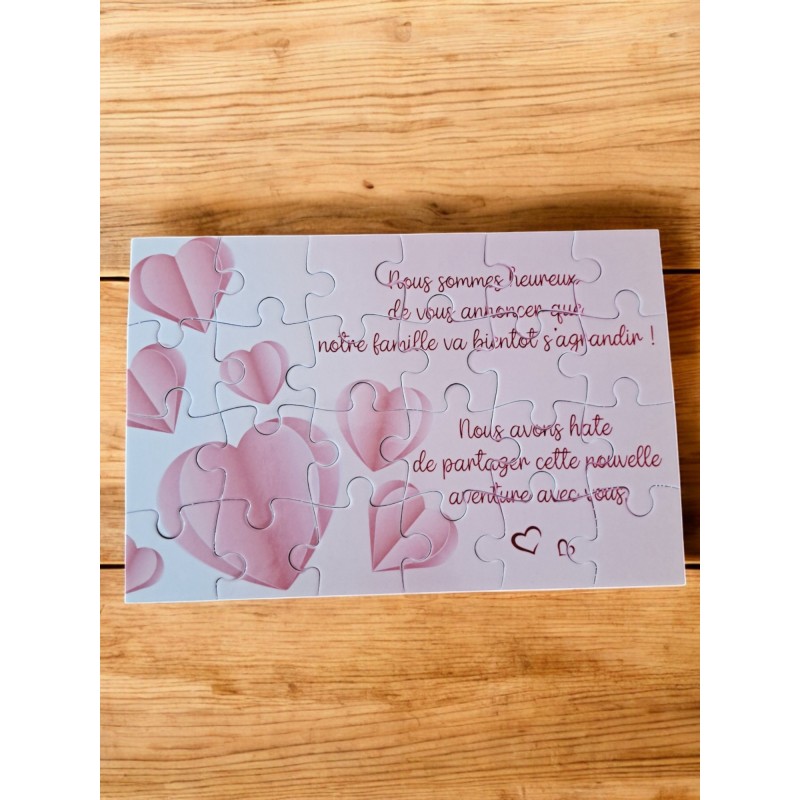 Nous sommes heureux
de vous annoncer que
notre famille va bientot s'agrandir !
Nous avons hate
de partager cette nouvelle
aventure avec vous